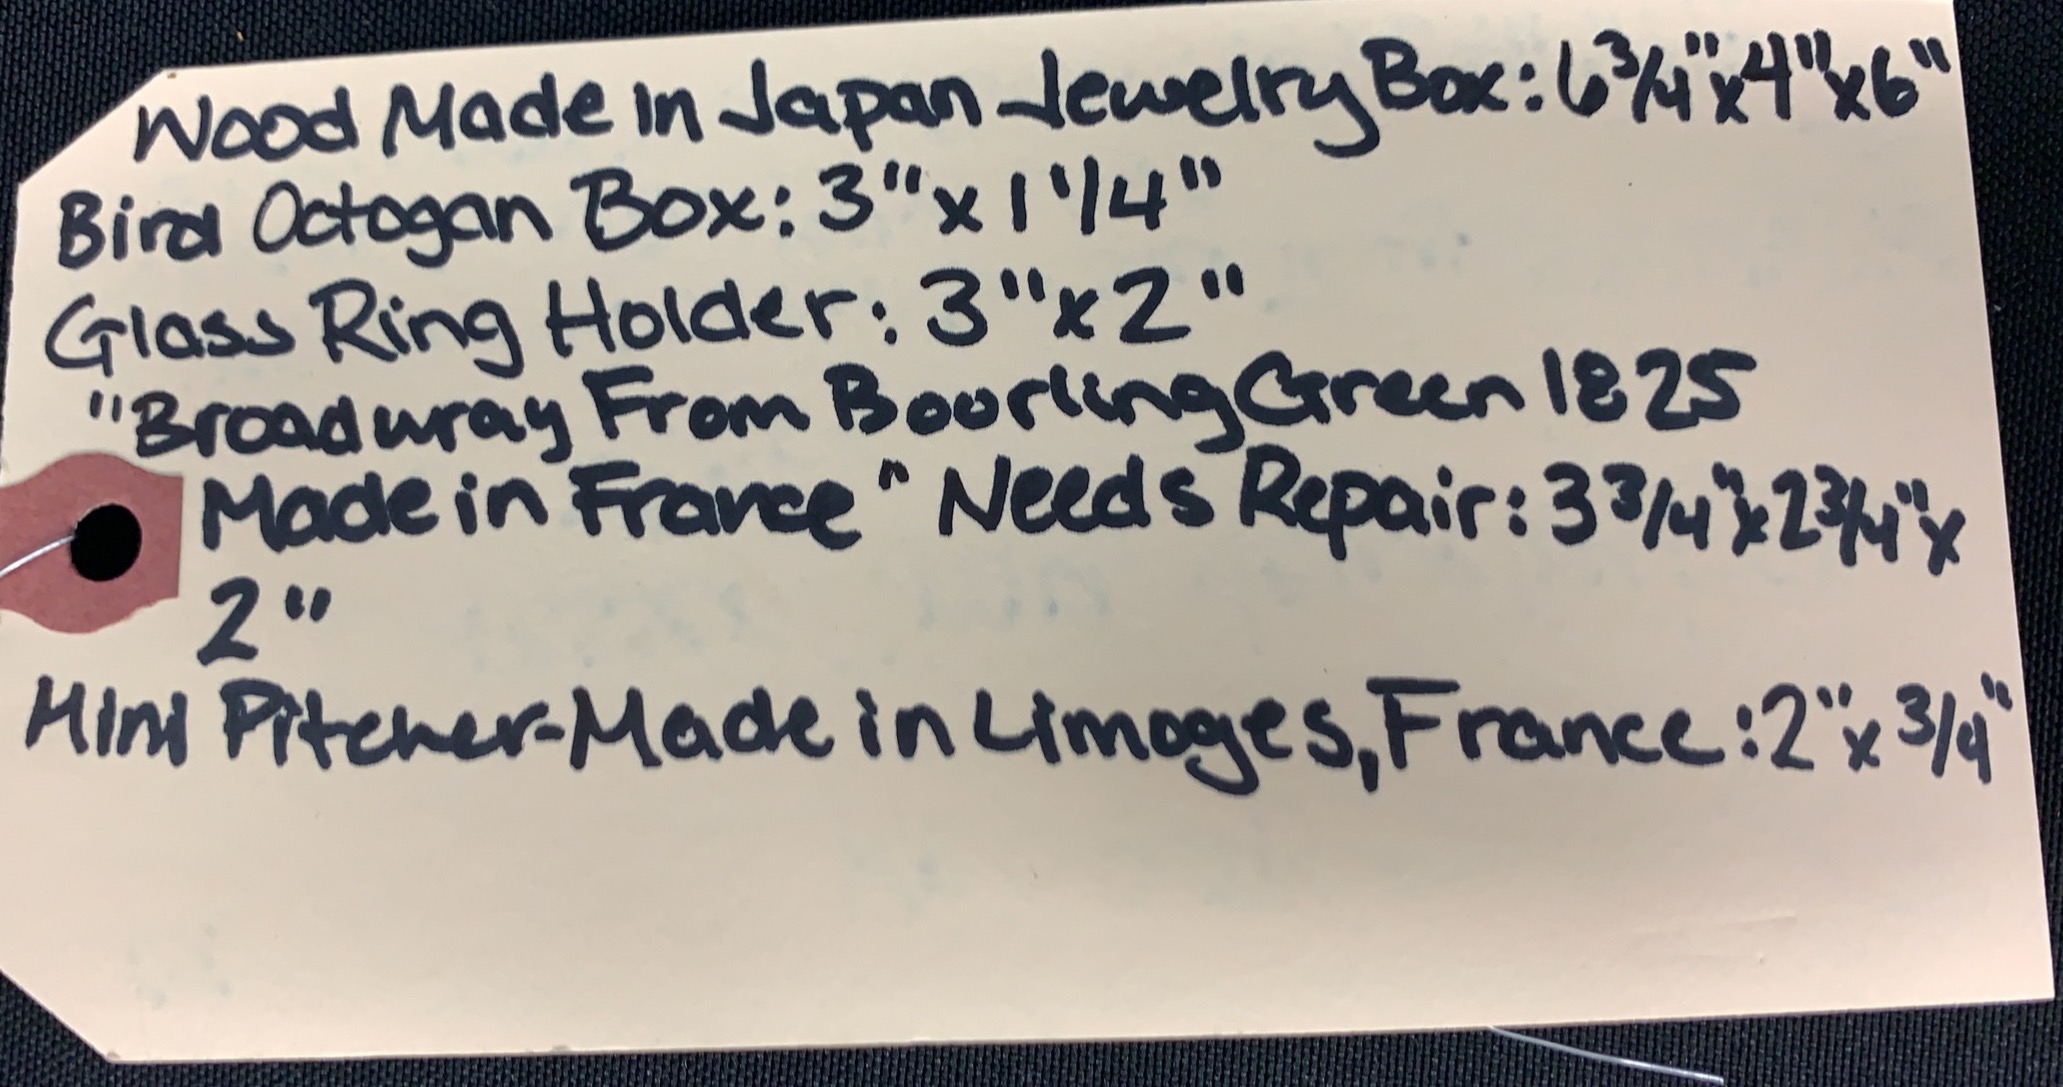 Wood Made in Japan Jewelry Box: 6 3/4" x 4" x 6"
Bird Octogan Box: 3" x 1 1/4"
Glass Ring Holder: 3" x 2"
"Broadway From Boorling Green 1825
Made in France" Needs Repair: 3 3/4" x 2 3/4" x
2"
Mini Pitcher-Made in Limoges, France: 2" x 3/4"